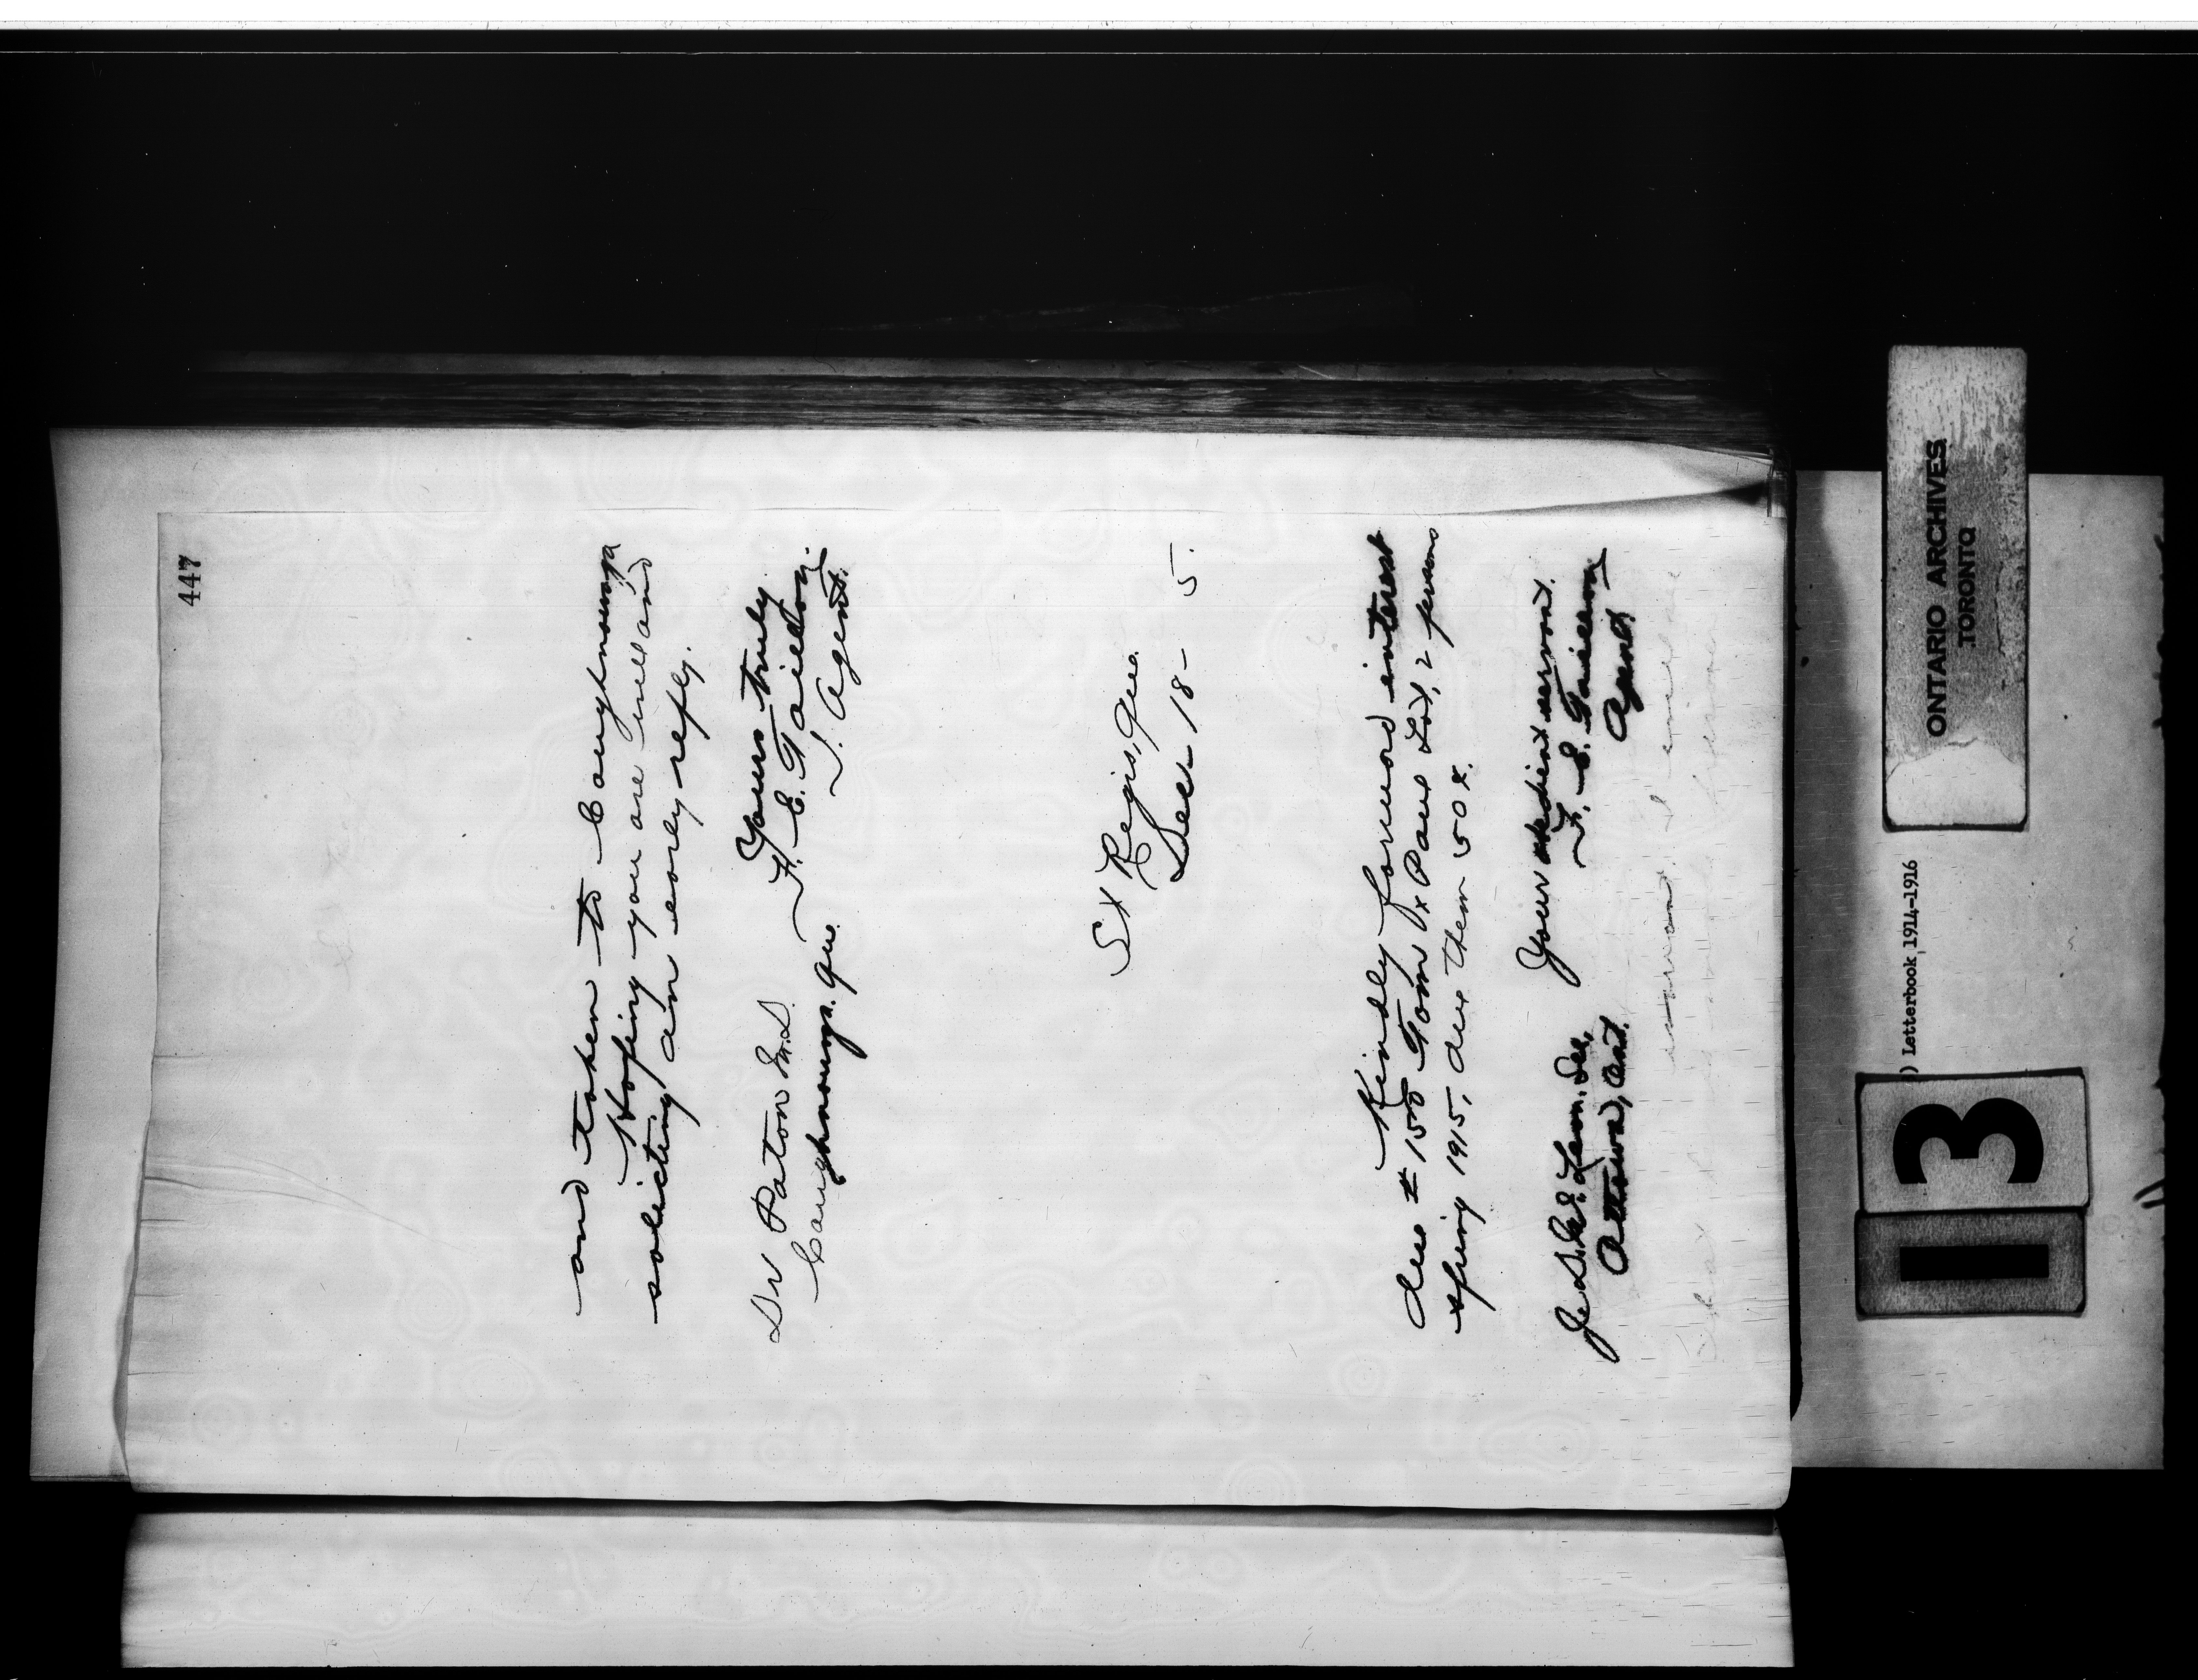 447
and taken to Caughnawaga
Hoping you are well and
soliciting an early reply.
Yours truly
Dr Paton M.D. F. E. Taillon
Caughnawaga. Que. I. Agent.
St Regis, Que.
Dec 18 - 5.
Kindly forward interest
due # 150 Tom Paul List, 2 persons
spring 1915, due them 50
Your obedient servant.
F. E. Taillon
Agent
Ottawa, Ont.
ONTARIO ARCHIVES
TORONTO
) Letterbook 1914-1916
13